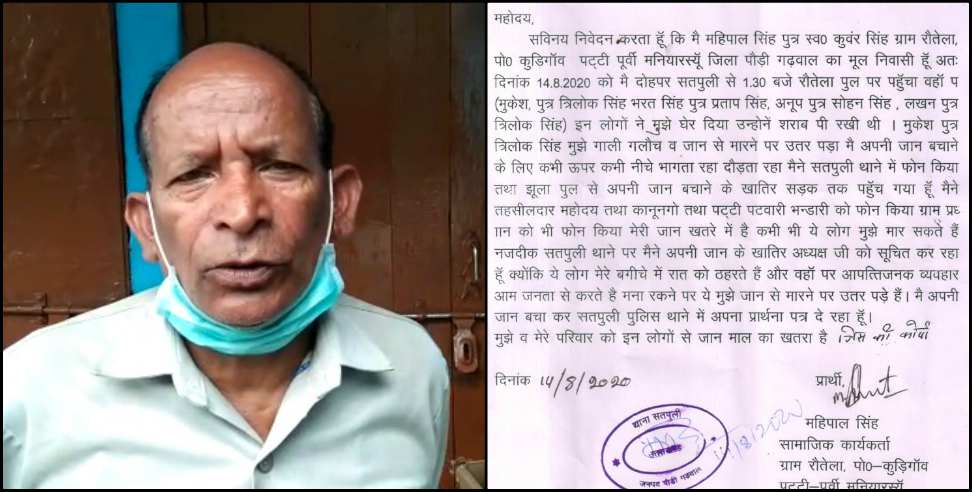 महोदय,
सविनय निवेदन करता हूँ कि मै महिपाल सिंह पुत्र स्व0 कुवंर सिंह ग्राम रौतेला,
पो0 कुडिगॉव पट्टी पूर्वी मनियारस्यूँ जिला पौड़ी गढ़वाल का मूल निवासी हूँ अतः
दिनांक 14.8.2020 को मै दोहपर सतपुली से 1.30 बजे रौतेला पुल पर पहुँचा वहॉ प
(मुकेश, पुत्र त्रिलोक सिंह भरत सिंह पुत्र प्रताप सिंह, अनूप पुत्र सोहन सिंह , लखन पुत्र
त्रिलोक सिंह) इन लोगों ने मुझे घेर दिया उन्होनें शराब पी रखी थी । मुकेश पुत्र
त्रिलोक सिंह मुझे गाली गलौच व जान से मारने पर उतर पड़ा मै अपनी जान बचाने
के लिए कभी ऊपर कभी नीचे भागता रहा दौड़ता रहा मैने सतपुली थाने में फोन किया
तथा झूला पुल से अपनी जान बचाने के खातिर सड़क तक पहुँच गया हूँ मैने
तहसीलदार महोदय तथा कानूनगो तथा पट्टी पटवारी भन्डारी को फोन किया ग्राम प्रध
ान को भी फोन किया मेरी जान खतरे में है कभी भी ये लोग मुझे मार सकते हैं
नजदीक सतपुली थाने पर मैने अपनी जान के खातिर अध्यक्ष जी को सूचित कर रहा
हूँ क्योंकि ये लोग मेरे बगीचे में रात को ठहरते हैं और वहॉ पर आपत्तिजनक व्यपहार
आम जनता से करते है मना रकने पर ये मुझे जान से मारने पर उतर पड़े हैं। मै अपनी
जान बचा कर सतपुली पुलिस थाने में अपना प्रार्थना पत्र दे रहा हूँ।
मुझे व मेरे परिवार को इन लोगों से जान माल का खतरा है
दिनांक 14/8/2020 प्रार्थी,
थाना सतपुली
जनपद पौडी गढवाल
महिपाल सिंह
सामाजिक कार्यकर्ता
ग्राम रौतेला, पो0–कुड़िगॉव
पट्टी–पूर्वी मनियारस्यूँ